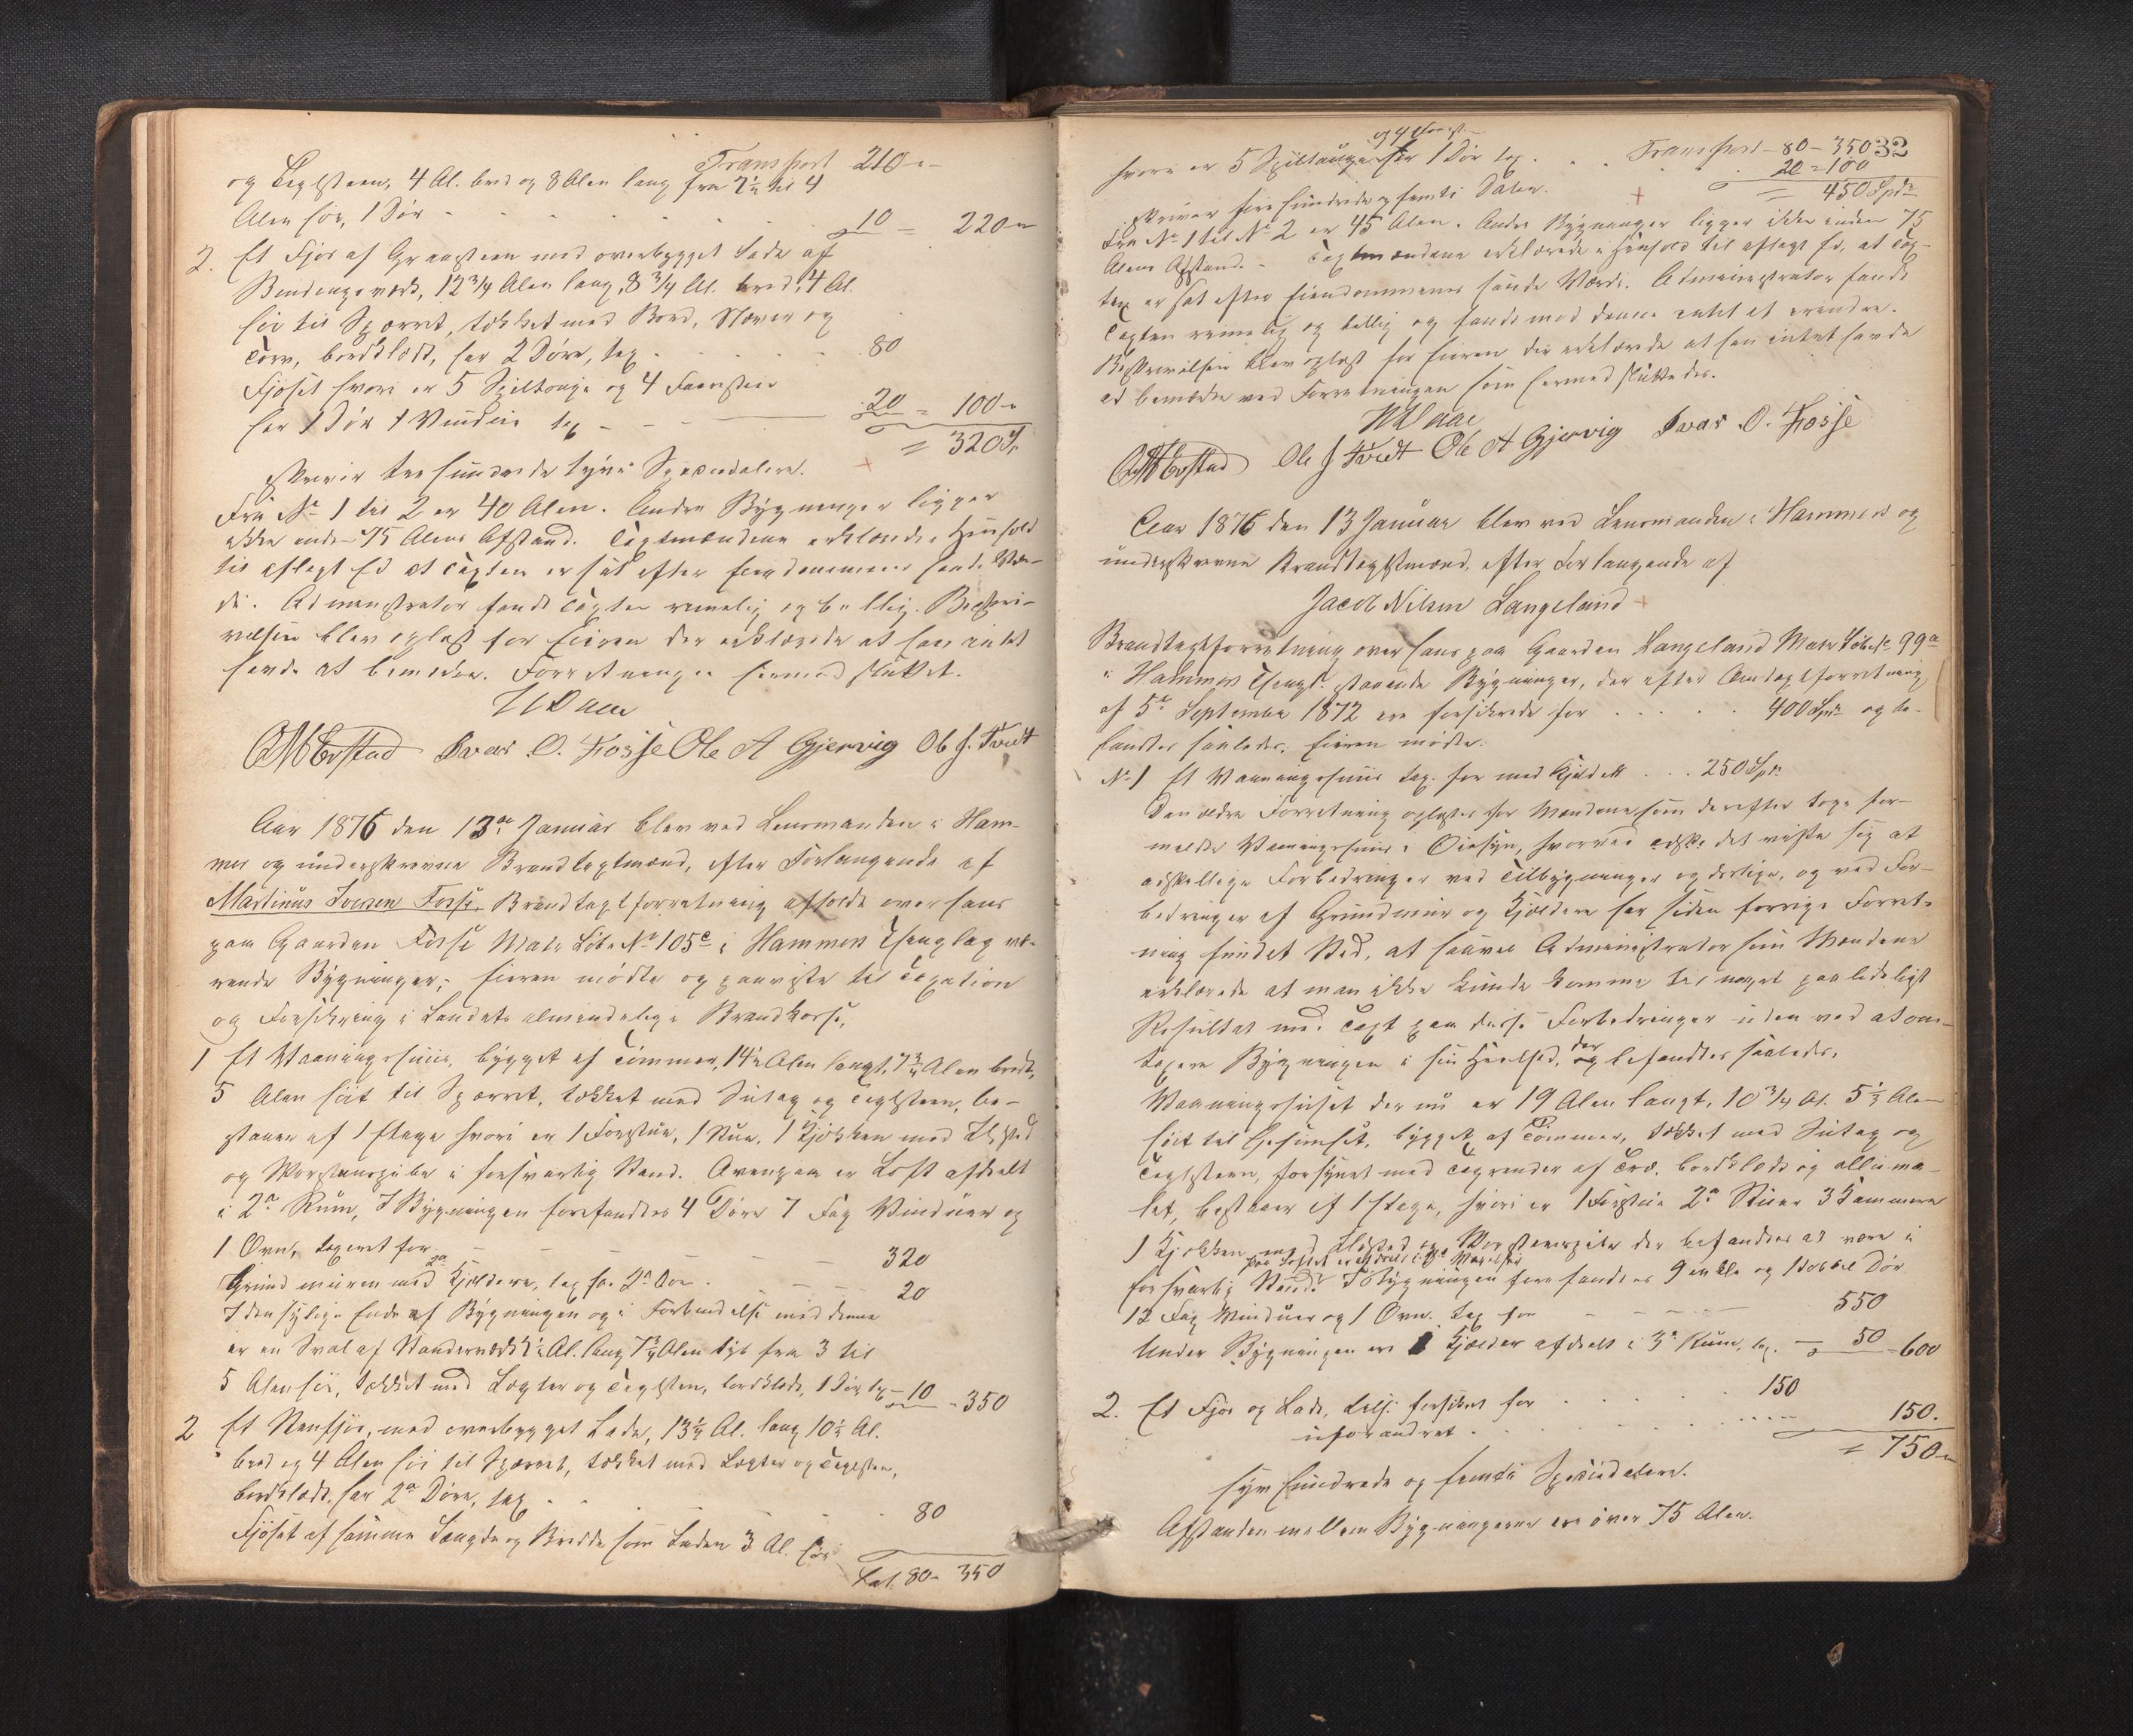 Transport 210 –
og Teglsteen, 4 Al. bred og 8 Alen lang fra 2½ til 4
Alen høi, 1 Dør - - - 10 = 220 –
2. Et Fjøs af Graasteen med overbygget Lade af
Bindingsværk, 12¾ Alen lang, 8¾ Al. bred, 4 Al.
høi til Sparret, tækket med Bord, Næver og
Törv, bordklædt, har 2 Døre, tax . . . 80
Fjøset hvori er 5 Spiltouge og 4
har 1 Dör 1 Vindue tax - - - 20 = 100 –
= 320 Sp.
skriver tre hundrede tyve Speciedaler.
Fra No 1 til 2 er 40 Alen. Andre Bygninger ligger
ikke inden 75 Alens Afstand. Taxtmændene erklærede i Henhold
til aflagt Ed at Taxten er sat efter Eiendommenes sande Vær-
di. Administrator fandt Taxten rimelig og billig. Beskri-
velsen blev oplæst for Eieren der erklærede at han intet
havde at bemærke. Forretningen hermed sluttet.
Ivar O. Fosse Ole A Gjervig Ole J. Tvedt
Aar 1876 den 13de Januar blev ved Lensmanden i Ham-
mer og underskrevne Brandtaxtmænd, efter Forlangende af
Martinus Iversen Fosse, Brandtaxtforretning afholdt over hans
paa Gaarden Fosse Matr Löbe No 105c i Hammers Thinglag væ-
rende Bygninger; Eieren mødte og paaviste til Taxation
og Forsikring i Landets almindelige Brandkasse,
1 Et Vaaningshuus, bygget af Tömmer, 14½ Alen langt, 7¾ Alen bredt,
5 Alen höit til Sparret, tækket med Sutag og Teglsteen, be-
staaer af 1 Etage hvori er 1 Forstue, 1 Stue, 1 Kjøkken med Ildsted
og Skorstenspibe i forsvarlig Stand. Ovenpaa er Loft afdeelt
i 2de Rum, I Bygningen forefandtes 4 Døre 7 Fag Vinduer og
1 Ovn, taxeret for - - - 320
Grundmuren med 2de Kjældere, tax for - - 20
I den sydlige Ende af Bygningen og i Forbindelse med denne
er en Sval af Standerværk Al. lang 7¾ Alen fra 3 til
5 Alen höi, tækket med Lægter og Teglsten, bordklædt, 1 Dör tax – 10 = 350
2 Et Steenfjös, med overbygget Lade, 13¼ Al. lang 10½ Al.
bred og 4 Alen höi til Sparret, tækket med Lægter og Teglsten,
bordklædt, har 2de Döre, tax . . . 80
Fjöset af samme Længde og Bredde som Laden 3 Al. höi
Lat. 80 – 350
32
Transport – 80 – 350
hvori er 5 Spiltouge har 1 Dör tax . . . 20 = 100
= 450 Spd
skriver fire hundrede og femti Daler.
Fra No 1 til No 2 er 45 Alen. Andre Bygninger ligger ikke inden 75
Alens Afstand. – Taxtmændene erklærede i Henhold til aflagt Ed, at Tax-
ten er sat efter Eiendommenes sande Værdi. Administrator fandt
Taxten rimelig og billig og fandt mod denne intet at erindre.
Beskrivelsen blev oplæst for Eieren der erklærede at han intet havde
at bemærke ved Forretningen som hermed sluttedes.
Ole J Tvedt Ole A Gjervig Ivar O. Fosse
Aar 1876 den 13 Januar blev ved Lensmanden i Hammer og
underskrevne Brandtaxtmænd, efter Forlangende af
Jacob Nilsen Langeland
Brandtaxtforretning over hans paa Gaarden Langeland Matr Löbe No 99a
i Hammers Thingl. staaende Bygninger, der efter Omtaxtforretning
af 5te September 1872 ere forsikrede for . . . 400 Spd og be-
fandtes saaledes: Eieren mödte.
No 1 Et Vaaningshuus tax. for med Kjelder . . . 250 Spd
Den ældre Forretning oplæstes for Mændene som derefter toge for-
meldte Vaaningshuus i Öiesyn, hvorved det viste sig at
adskillige Forbedringer ved Tilbygninger og deslige, og ved For-
bedringer af Grundmur og Kjældere har siden forrige Forret-
ning fundet Sted, at saavel Administrator som Mændene
erklærede at man ikke kunde komme til noget paalideligt
Resultat med Taxt paa disse Forbedringer uden ved at om-
taxere Bygningen i sin Heelhed, der befandtes saaledes.
Vaaningshuset der nu er 19 Alen langt, 10¾ Al. 5½ Alen
höit til Gesimset, bygget af Tömmer, tækket med Sutag og
Teglsteen, forsynet med Tagrender af Træ, bordklædt og oliema-
let, bestaaer af 1 Etage, hvori er 1 Forstue 2de Stuer 3 Kammere
1 Kjökken med Ildsted og Skorsteenspibe der befandtes at være i
paa Loftet er afdeelt i Værelser
forsvarlig Stand. I Bygningen forefandtes 9 enkle og 1 dobbel Dör
12 Fag Vinduer og 1 Ovn. Tax for - - - 550
Under Bygningen er 1 Kjælder afdeelt i 3de Rum, tax. – 50 = 600
2. Et Fjös og Lade, tilsj. forsikret for . . . 150
uforandret . . . 150.
= 750 –
syv hundrede og femti Speciedaler.
Afstanden mellem Bygningerne er over 75 Alen.